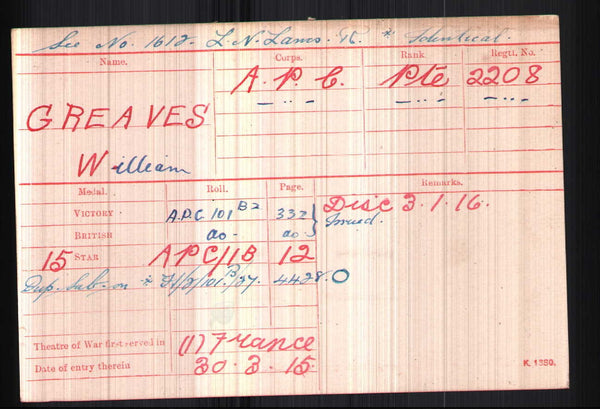 See No. 1612. L. N. Lancs. R. * Identical.
Name. Corps. Rank Regtl. No.
A. P. C. Pte 2208
GREAVES — „ — — „ — — „ —
William
Medal. Roll. Page. Remarks.
VICTORY A.P.C. 101 B2 332 } Disc 3.1.16.
BRITISH do- do- Issued.
15 STAR APC/1B 12
Dup. Sub- on * 4428. O
Theatre of War first served in (1) France
Date of entry therein 30.3.15.
K. 1380.